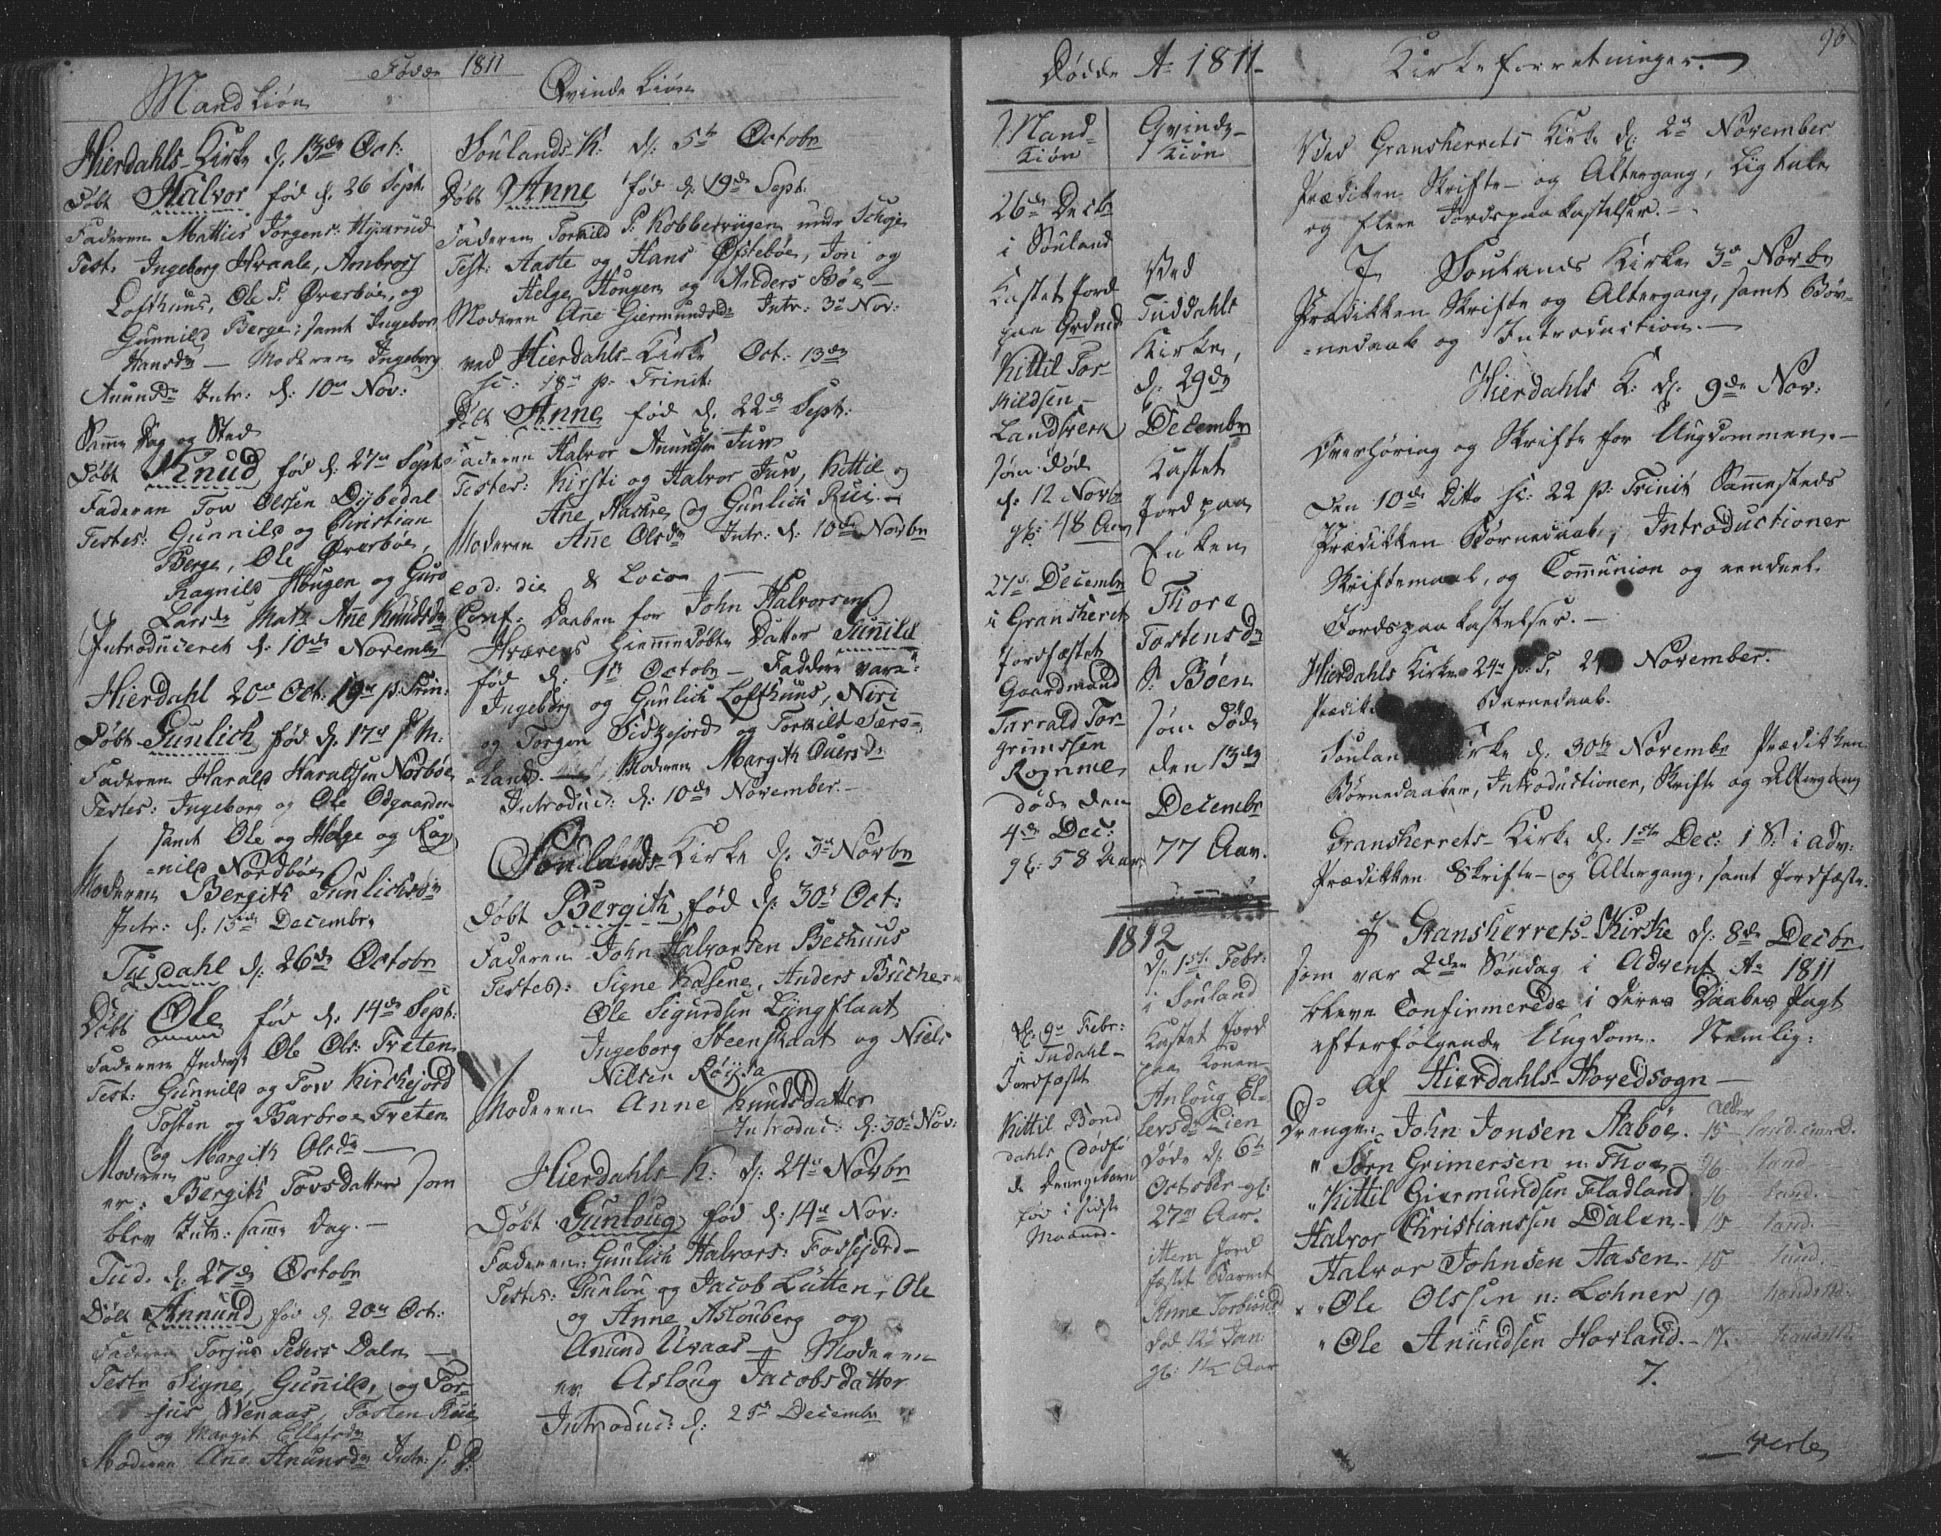 Fødde 1811
Mandkiøn
Hierdahls-Kirke d. 13de Oct:
Døbt Halvor fød d. 26 Sept:
Faderen Matties Jørgens:
Test: Ingeborg Hvaale, Ambros
Lofthuus, Ole T. Øverbøe, og
Gunnild Berge; samt Ingebor
Hansdr — Moderen Ingeborg
Anundsdr Intr: d: 10de Nov:
Samme Dag og Sted
Døbt Knud fød d. 27de Sept
Faderen Tov Olsen Dybedal
Testes: Gunnild og Christian
Berge, Ole Øverbøe,
Ragnild Hougen og Guro
Larsdr Matr Anne Knudsdr
Introduceret d. 10de Novembr
Hierdahl 20de Oct: 19de p: Trin:
Døbt Gunlich fød d. 17de s. M:
Faderen Harald Haraldsen Norbøe
Testes: Ingeborg og Ole Odgaarden
samt Ole og Helge og Rag
=nild Nordbøe
Moderen Bergith Gunlichsdr
Intr: d. 15de Decembr.
Tudahl d: 26de Octobr
Døbt Ole fød d. 14de Sept:
Faderen Inderst Ole Ols: Treten
Test: Gunnild og Tov Kirkejord
Tosten og Barbroe Treten
og Margith Olsdr —
Moderen
er: Bergith Tovsdatter som
blev Intr: samme Dag. —
Tud. d. 27de Octobr
Døbt Annund fød d. 20de Oct:
Faderen Torjus Peders Dalen —
Teste Signe, Gunnild, og Tor-
jus Wenaas, Tosten Rue
og Margit Ellefsdr
Moderen Ane Anunsdr Intr: s. D:
Qvindekiøn
Soulands-K: d: 5te Octobr
Døbt Anne fød d. 19de Sept:
Faderen Torkild P: Kobbervigen under
Test: Aaste og Hans Øfstebøe, Jon og
Helge Hougen og Anders Bøe —
Moderen Ane Giermundsdr Intr: 3de Nov:
ved Hierdahls-Kirke Oct: 13de
sc: 18de p. Trinit:
Døbt Anne fød d. 22de Sept:
Faderen Halvor Anundsen Juv
Testes: Kirsti og Halvor Juv, Kittil og
Ane Hackre og Gunlich Rui. —
Moderen Anne Olsdr Intr: d. 10de Novbr
eod: die & Loco —
Conf: Daaben for John Halvorsen
Hværens hiemmedøbte Datter Gunild
fød d. 1ste Octobr — Faddere vare:
Ingeborg og Gunlich Lofthuus, Niri
og Torgon Sidgejord og Torkild Sers=
=land. — Moderen Margith Ouersdr
Introduc: d: 10de November. —
Soulands-Kirke d. 3de Novbr
Døbt Bergith fød d. 30te Oct:
Faderen John Halvorsen Bechuus
Testes: Signe Kasene, Anders Bucher
Ole Sigurdsen Lyngflaat
Ingeborg Steenstaat og Niels
Nilsen Røysa
Moderen Anne Knudsdatter
Introduc: d. 30te Nov:
Hierdahls-K: d. 24de Novbr
Døbt Gunloug fød d: 14de Nov:
Faderen: Gunlich Halvors: Fossejord —
Testes: Gunlou og Jacob Lutten, Ole
og Anne Aslouberg og
Anund Uvaas — Moderen
er Asloug Jacobsdatter
Introduc: d: 25de Decembr
Dødde Ao 1811
Mand-
kiøn
26de Decbr
i Souland
Kastet Jord
paa Grdmd
Kittil Tor-
kildsen
Landsverk
som døde
d. 12 Novb
gl: 48 Aar
27de Decembr
i Gransherret
Jordfæstet
Gaardmand
Tarrald Tor-
grimssen
Romme
døde den
4de Dec:
gl: 58 Aar
d. 9de Febr:
i Tudahl-
Jordfæstet
Kittil Bond
dahls dødfø
de Drengebarn
fød i sidste
Maaned.
Qvinde-
kiøn
Ved
Tuddahls
Kirke,
d: 29de
Decembr
Kastet
Jord paa
Enken
Thore
Tostensdr
S: Bøen
som døde
den 13de
Decembr
77 Aar.
1812
d. 1ste Febr:
i Souland
Kastet Jord
paa Konen
Anloug El-
levsdr Lien
døde d. 6te
October gl:
27de Aar.
item Jord
fæstet Barnet
Anne Torbiønsd
død 12te Jan:
gl: 1½ Aar
Kirkeforretninger.
96
Ved Gransherrets Kirke d: 2de November
Prædiken Skrifte- og Altergang, Ligtale
og flere Jordspaakastelser. —
I Soulands Kirke 3de Novbr
Prædikken Skrifte og Altergang, samt Bør-
=nedaab og Introduction. —
Hierdahls K: d. 9de Nov:
Overhøring og Skrifte for Ungdommen. —
Den 10de Ditto sc: 22 p. Trinit Sammesteds
Prædikken Børnedaab, Introductioner
Skriftemaal, og Communion og eendeel
Jordspaakastelser. —
Hierdahls Kirke 24de p: T: 24de November.
Prædik Barnedaab.
Soulan Kirke d. 30te Novembr Prædikken
Børnedaaben, Introductioner, Skrifte og Altergang
Gransherrets-Kirke d. 1ste Dec: 1 S: i adv:
Prædikken Skrifte- og Altergang, samt Jordfæste.
I Gransherrets-Kirke d: 8de Decbr
som var 2den Søndag i Advent Ao 1811
bleve Confirmerede i deres Daabes Pagt
efterfølgende Ungdom. Nemlig:
Af Hierdahls-Hovedsogn —
Alder
Drenge: John Jonsen Aabøe. 15
" Sørn Grimersen n: Thoe — 16 —
" Kittil Giermundsen Fladland 16
Halvor Christianssen Dalen — 15
Halvor Johnsen Aasen — 15
" Ole Olssen n: Lohner 19
" Ole Anundsen Hovland — 17.
7.
— verte